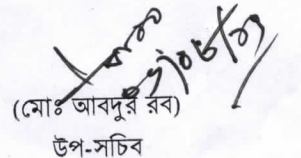 (মোঃ আবদুর রব)
উপ-সচিব